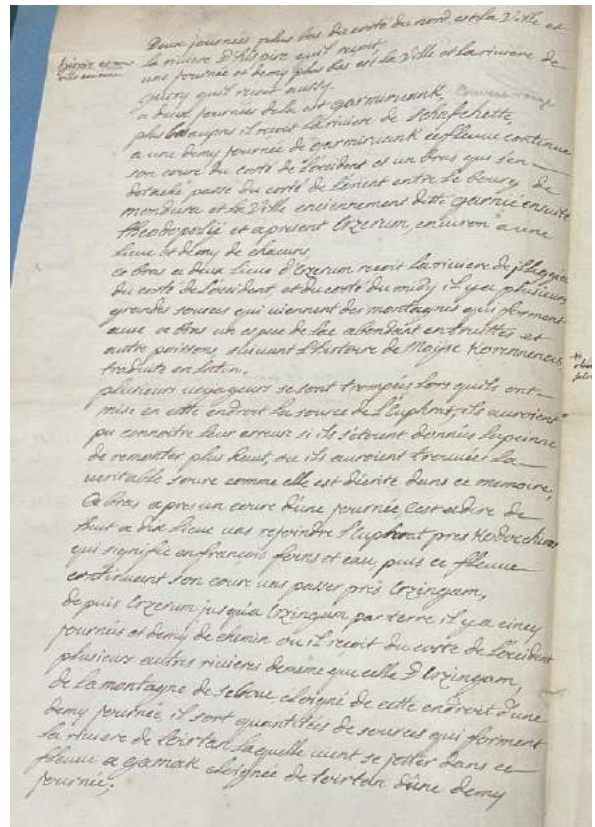 Deux journees plus bas du costé du nord est la Ville et
la riviere d'hispire qu'il reçoit
une journée et demy plus bas est la Ville et la riviere de
qu'il recoit aussy.
a deux journées de la est garmirvank,
plus bas il recoit la riviere de
a une demy journée de garmirvank ce fleuve continue
son cours du costé de l'occident et un bras qui s'en
detaché passe du costé de l'orient entre le bourg de
mondura et la Ville enciennement ditte garnie ensuite
theodopolis et apresent Erzerum, environ a une
lieue et demy de chacune
ce bras a deux lieue d'Erzerum recoit la riviere de
du costé de l'occident et du costé du midy il y a plusieurs
grandes sources qui viennent des montagnes qui forment
avec ce bras un espece de lac abondant en truittes et
autre poissons, suivant l'histoire de Moÿse Korennensis
traduite en latin.
plusieurs voyageurs se sont trompés lors qu'ils ont
mise en cette endroit la source de l'Euphrat, ils auroient
pu connoitre leur erreur si ils s'étoient donnés la peinne
de remonter plus haut, ou ils auroient trouvées la
veritable source comme elle est décrite dans ce memoire,
Ce bras apres un cours d'une journée c'est adire de
huit a dix lieue vas rejoindre l'Euphrat pres
qui signifie en francois foins et eau, puis ce fleuve
continuant son cour vas passer près Erzingam,
depuis Erzerum jusqu'a Erzingam par terre il y a cincq
journées et demy de chemin ou il recoit du costé de l'occident
plusieurs autres rivieres de meme que celle d'Erzingam,
de la montagne de eloigné de cette endroit d'une
demy journée, il sort quantités de sources qui forment
la riviere de laquelle vient se jetter dans ce
fleuve a gamak eloignée de d'une demy
journée;